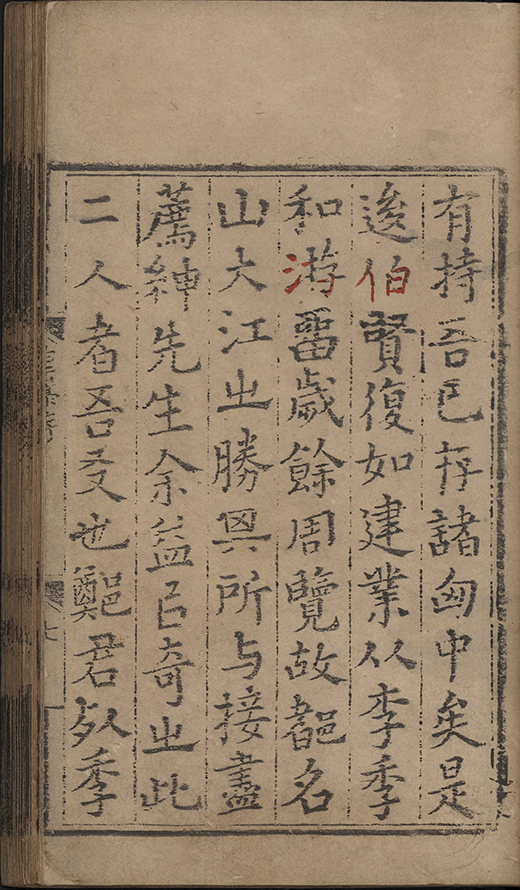 有持吾邑存諸匈中矣是
逡伯賢復如建業从李季
和游畱歲餘周覽故都名
山大江之勝其所与接盡
薦紳先生余益㠯奇之此
二人者吾友也鄭君季